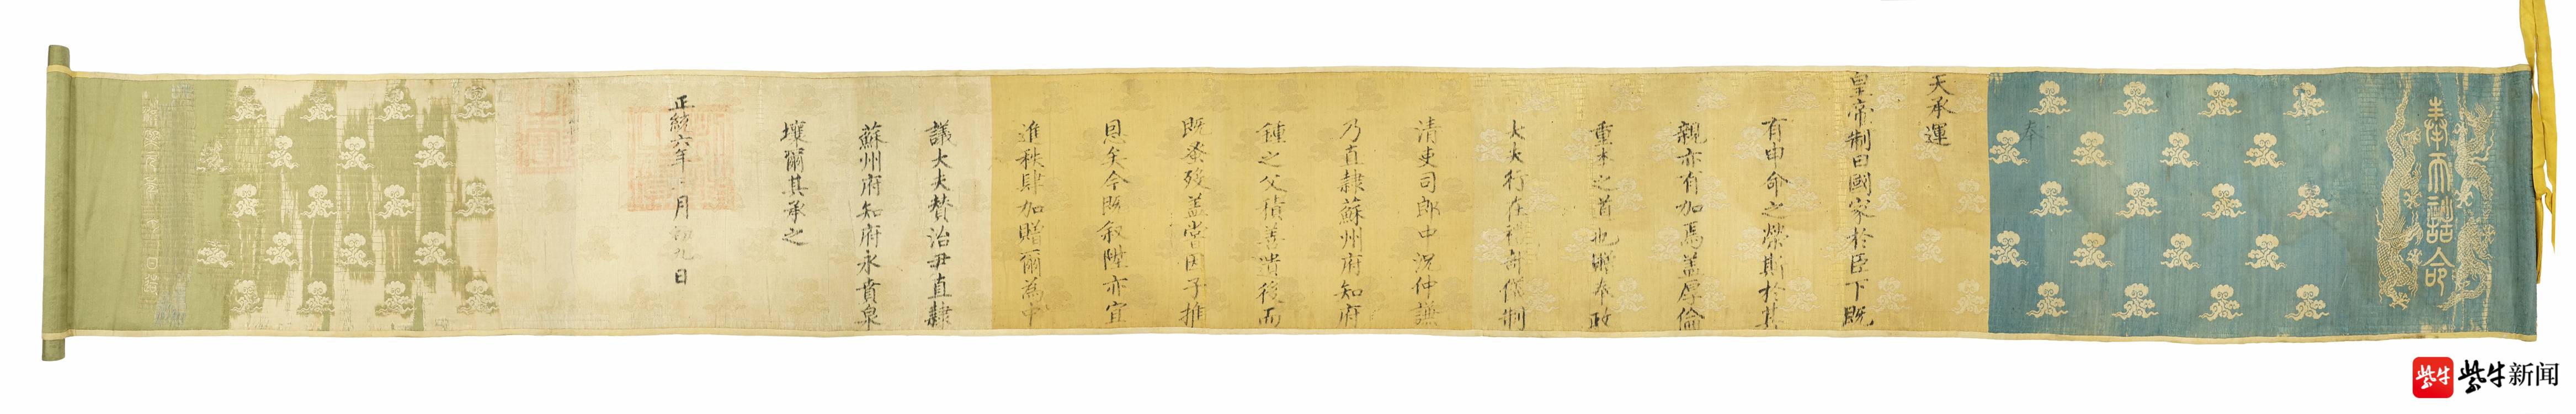 奉天誥命
奉
天承運
皇帝制曰國家於臣下既
有申命之榮斯於其
親亦有加焉蓋厚倫
重本之道也贈奉政
大夫行在禮部儀制
清吏司郎中況仲謙
乃直隸蘇州府知府
鍾之父積善遺後而
既發歿蓋嘗因子推
恩矣今既敘陞亦宜
進秩肆加贈爾為中
議大夫贊治尹直隸
蘇州府知府永賁泉
壤爾其承之
正統六年 月初九日
紫牛
紫牛新闻